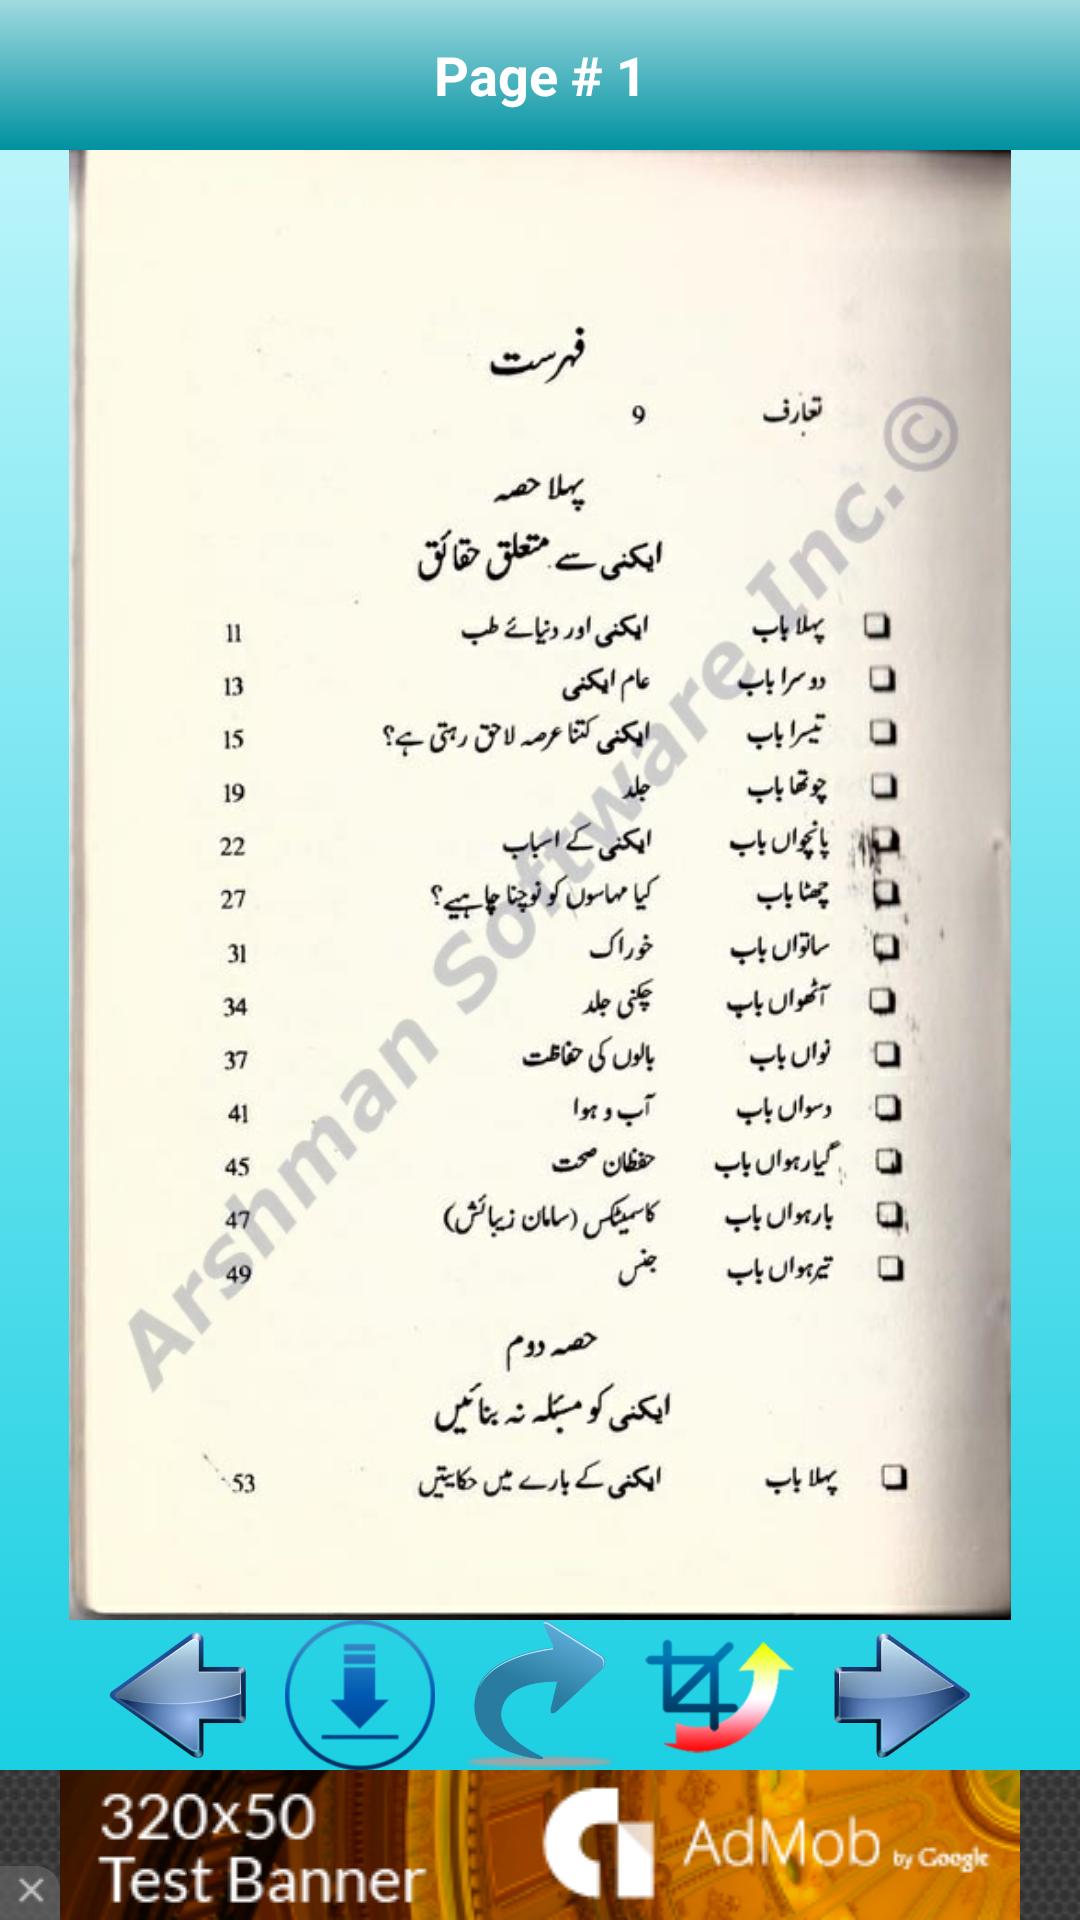 Page # 1
فہرست
تعارف 9
پہلا حصہ
ایکنی سے متعلق حقائق
پہلا باب ایکنی اور دنیائے طب 11
دوسرا باب عام ایکنی 13
تیسرا باب ایکنی کتنا عرصہ لاحق رہتی ہے؟ 15
چوتھا باب جلد 19
پانچواں باب ایکنی کے اسباب 22
چھٹا باب کیا مہاسوں کو نوچنا چاہیے؟ 27
ساتواں باب خوراک 31
آٹھواں باب چکنی جلد 34
نواں باب بالوں کی حفاظت 37
دسواں باب آب و ہوا 41
گیارہواں باب حفظان صحت 45
بارہواں باب کاسمیٹکس (سامان زیبائش) 47
تیرہواں باب جنس 49
حصہ دوم
ایکنی کو مسئلہ نہ بنائیں
پہلا باب ایکنی کے بارے میں حکایتیں 53
Arshman Software Inc. ©
320x50
Test Banner
AdMob by Google